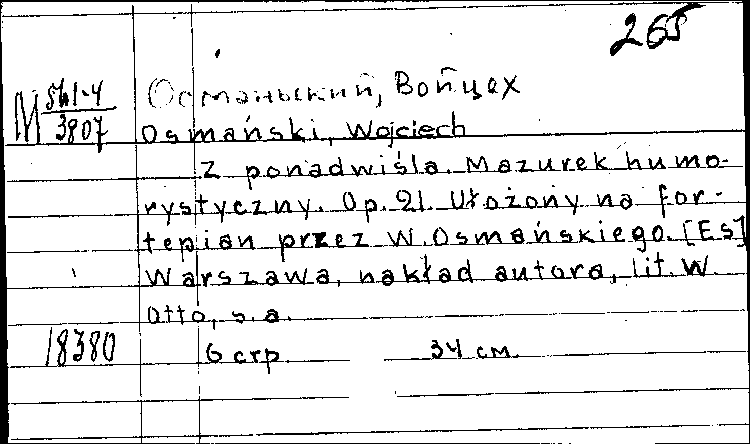 265
Османьский, Войцех
М 3807
Osmański, Wojciech
Z ponadwiśla. Mazurek humo-
rystyczny. Op. 21. Ułożony na for-
tepian przez W. Osmańskiego. [Es]
Warszawa, nakład autora, lit. W.
Otto, s.a.
18380 6 стр. 34 см.